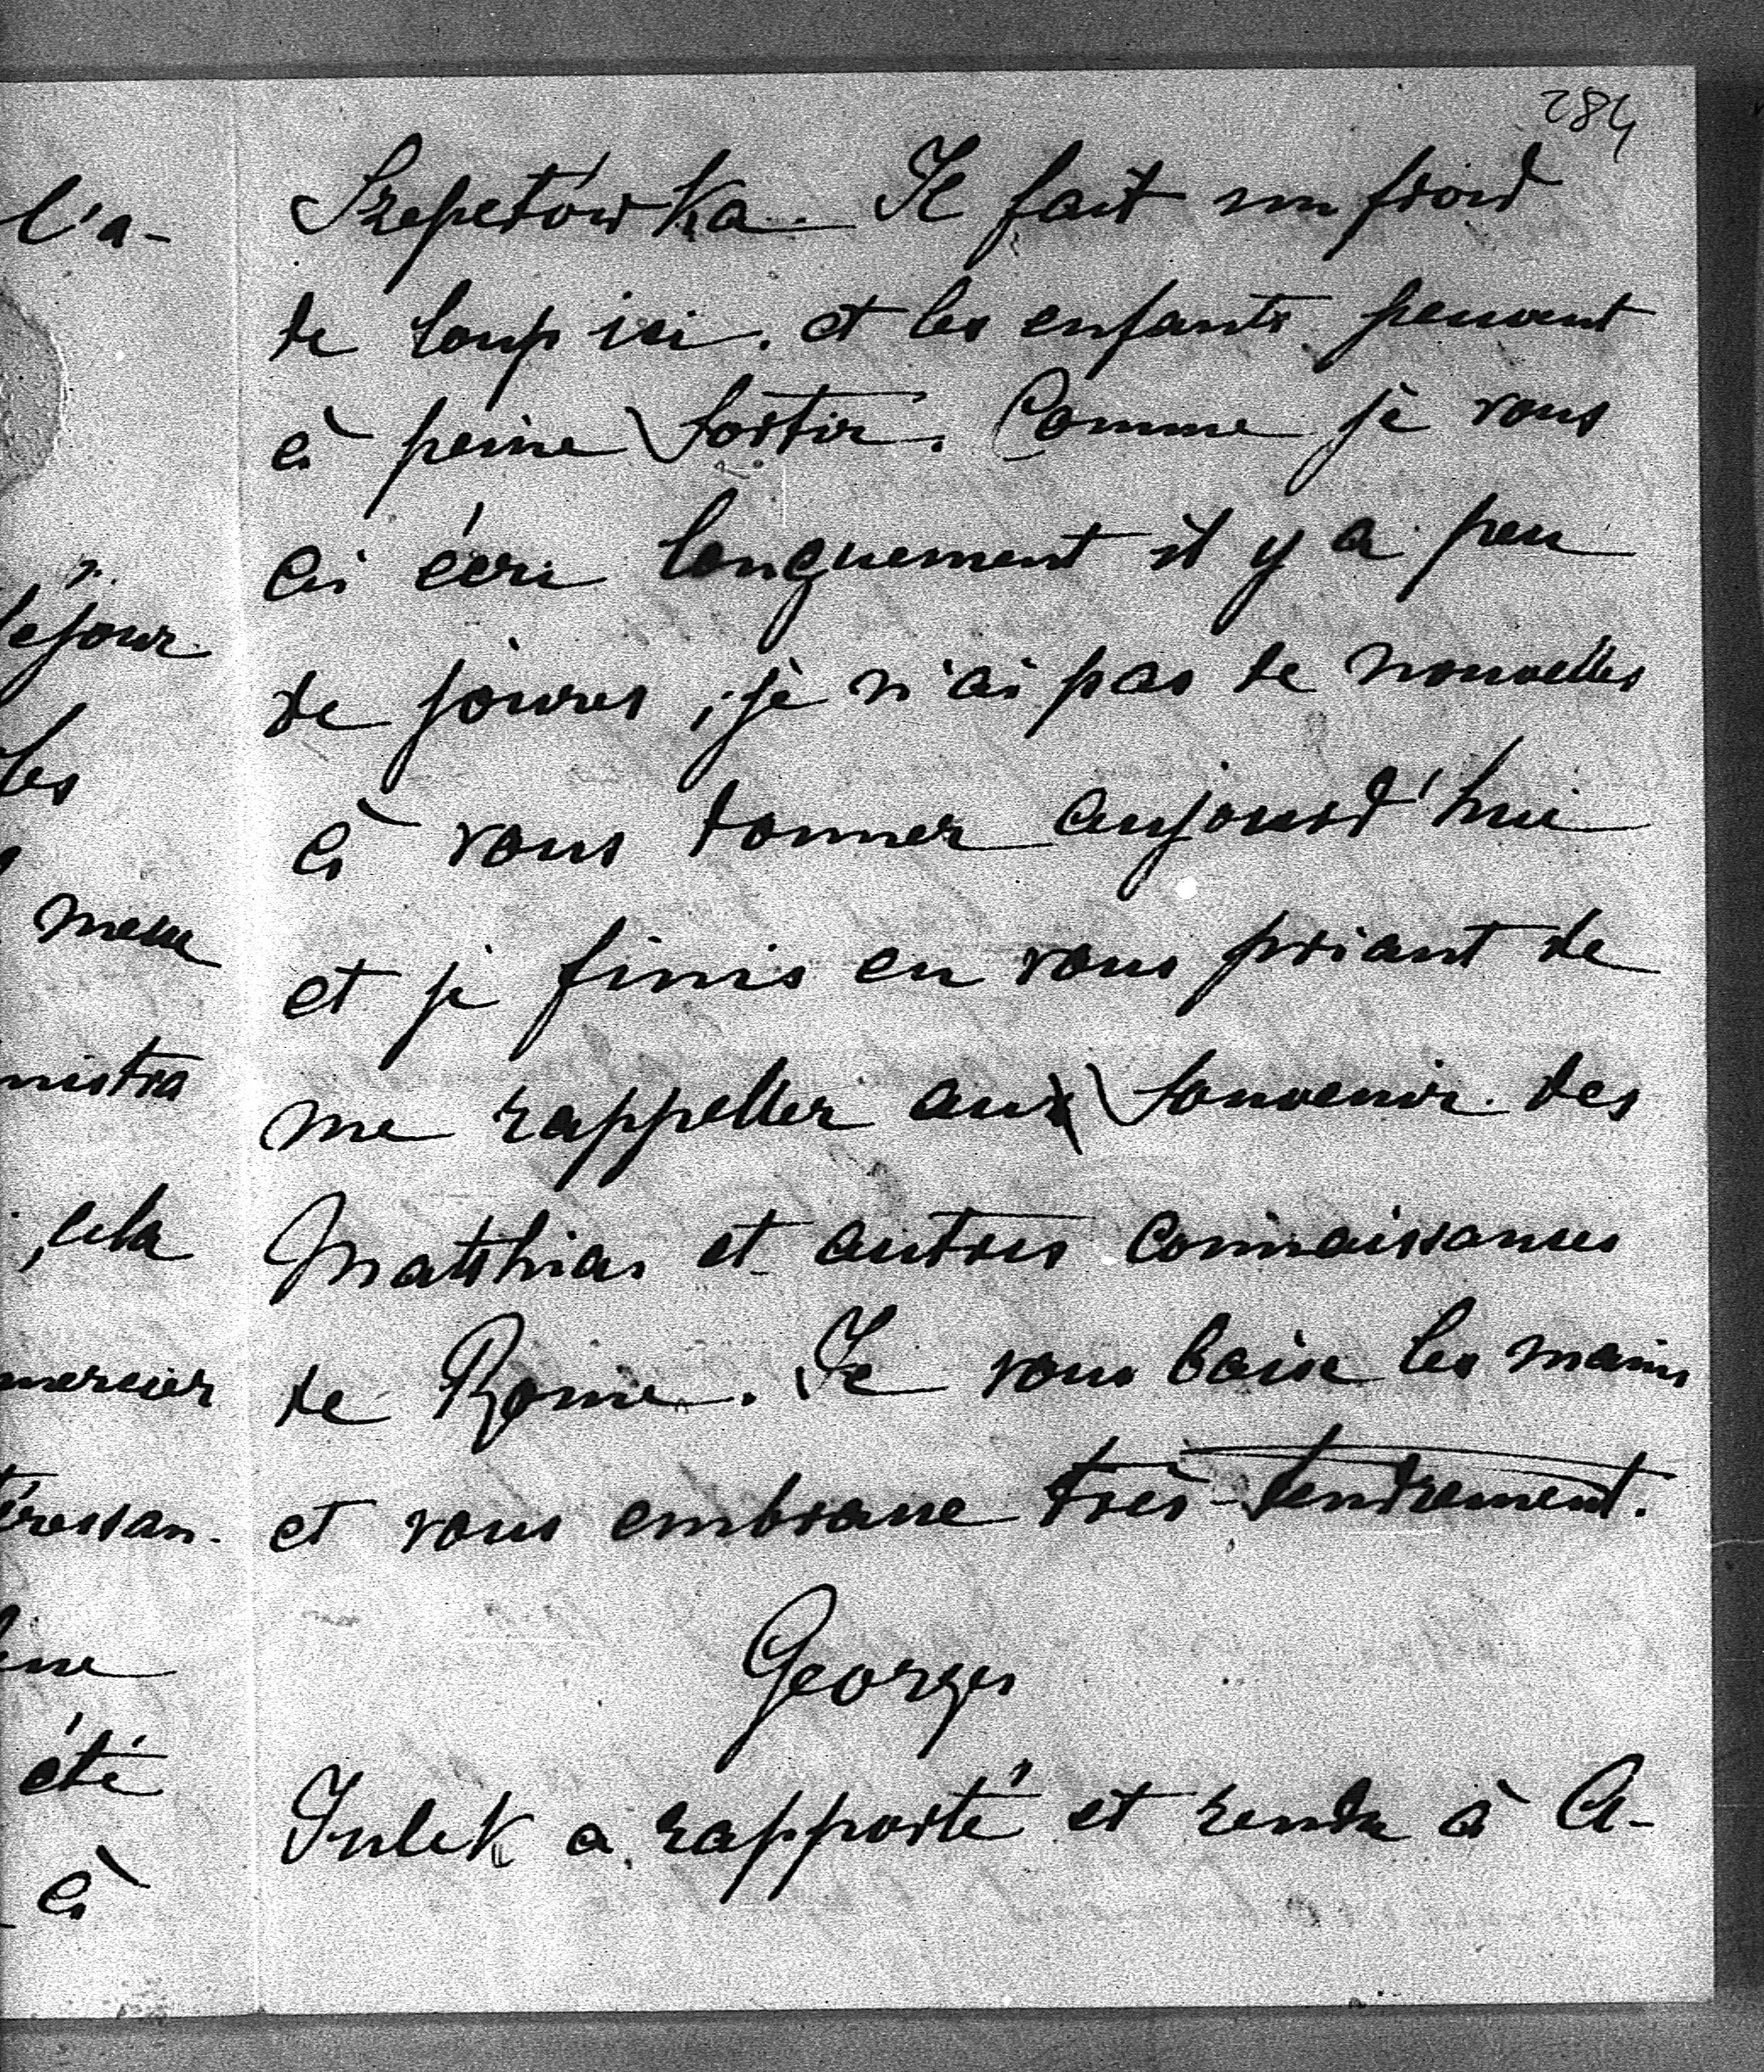 284
l'a-
éjour
les
nistra
, cela
mercier
téressan-
été
à
Szepetówka. Il fait un froid
de loup ici. et les enfants peuvent
à peine sortir. Comme je vous
ai écri longuement il y a peu
de joures, je n'ai pas de nouvelles
à vous donner aujourd'hui
et je finis en vous priant de
me rappeller aux souvenir des
Matthias et autres connaissances
de Rome. Je vous baise les mains
et vous embrasse très-tendrement.
Georges
Julek a rapporté et rendu à A-